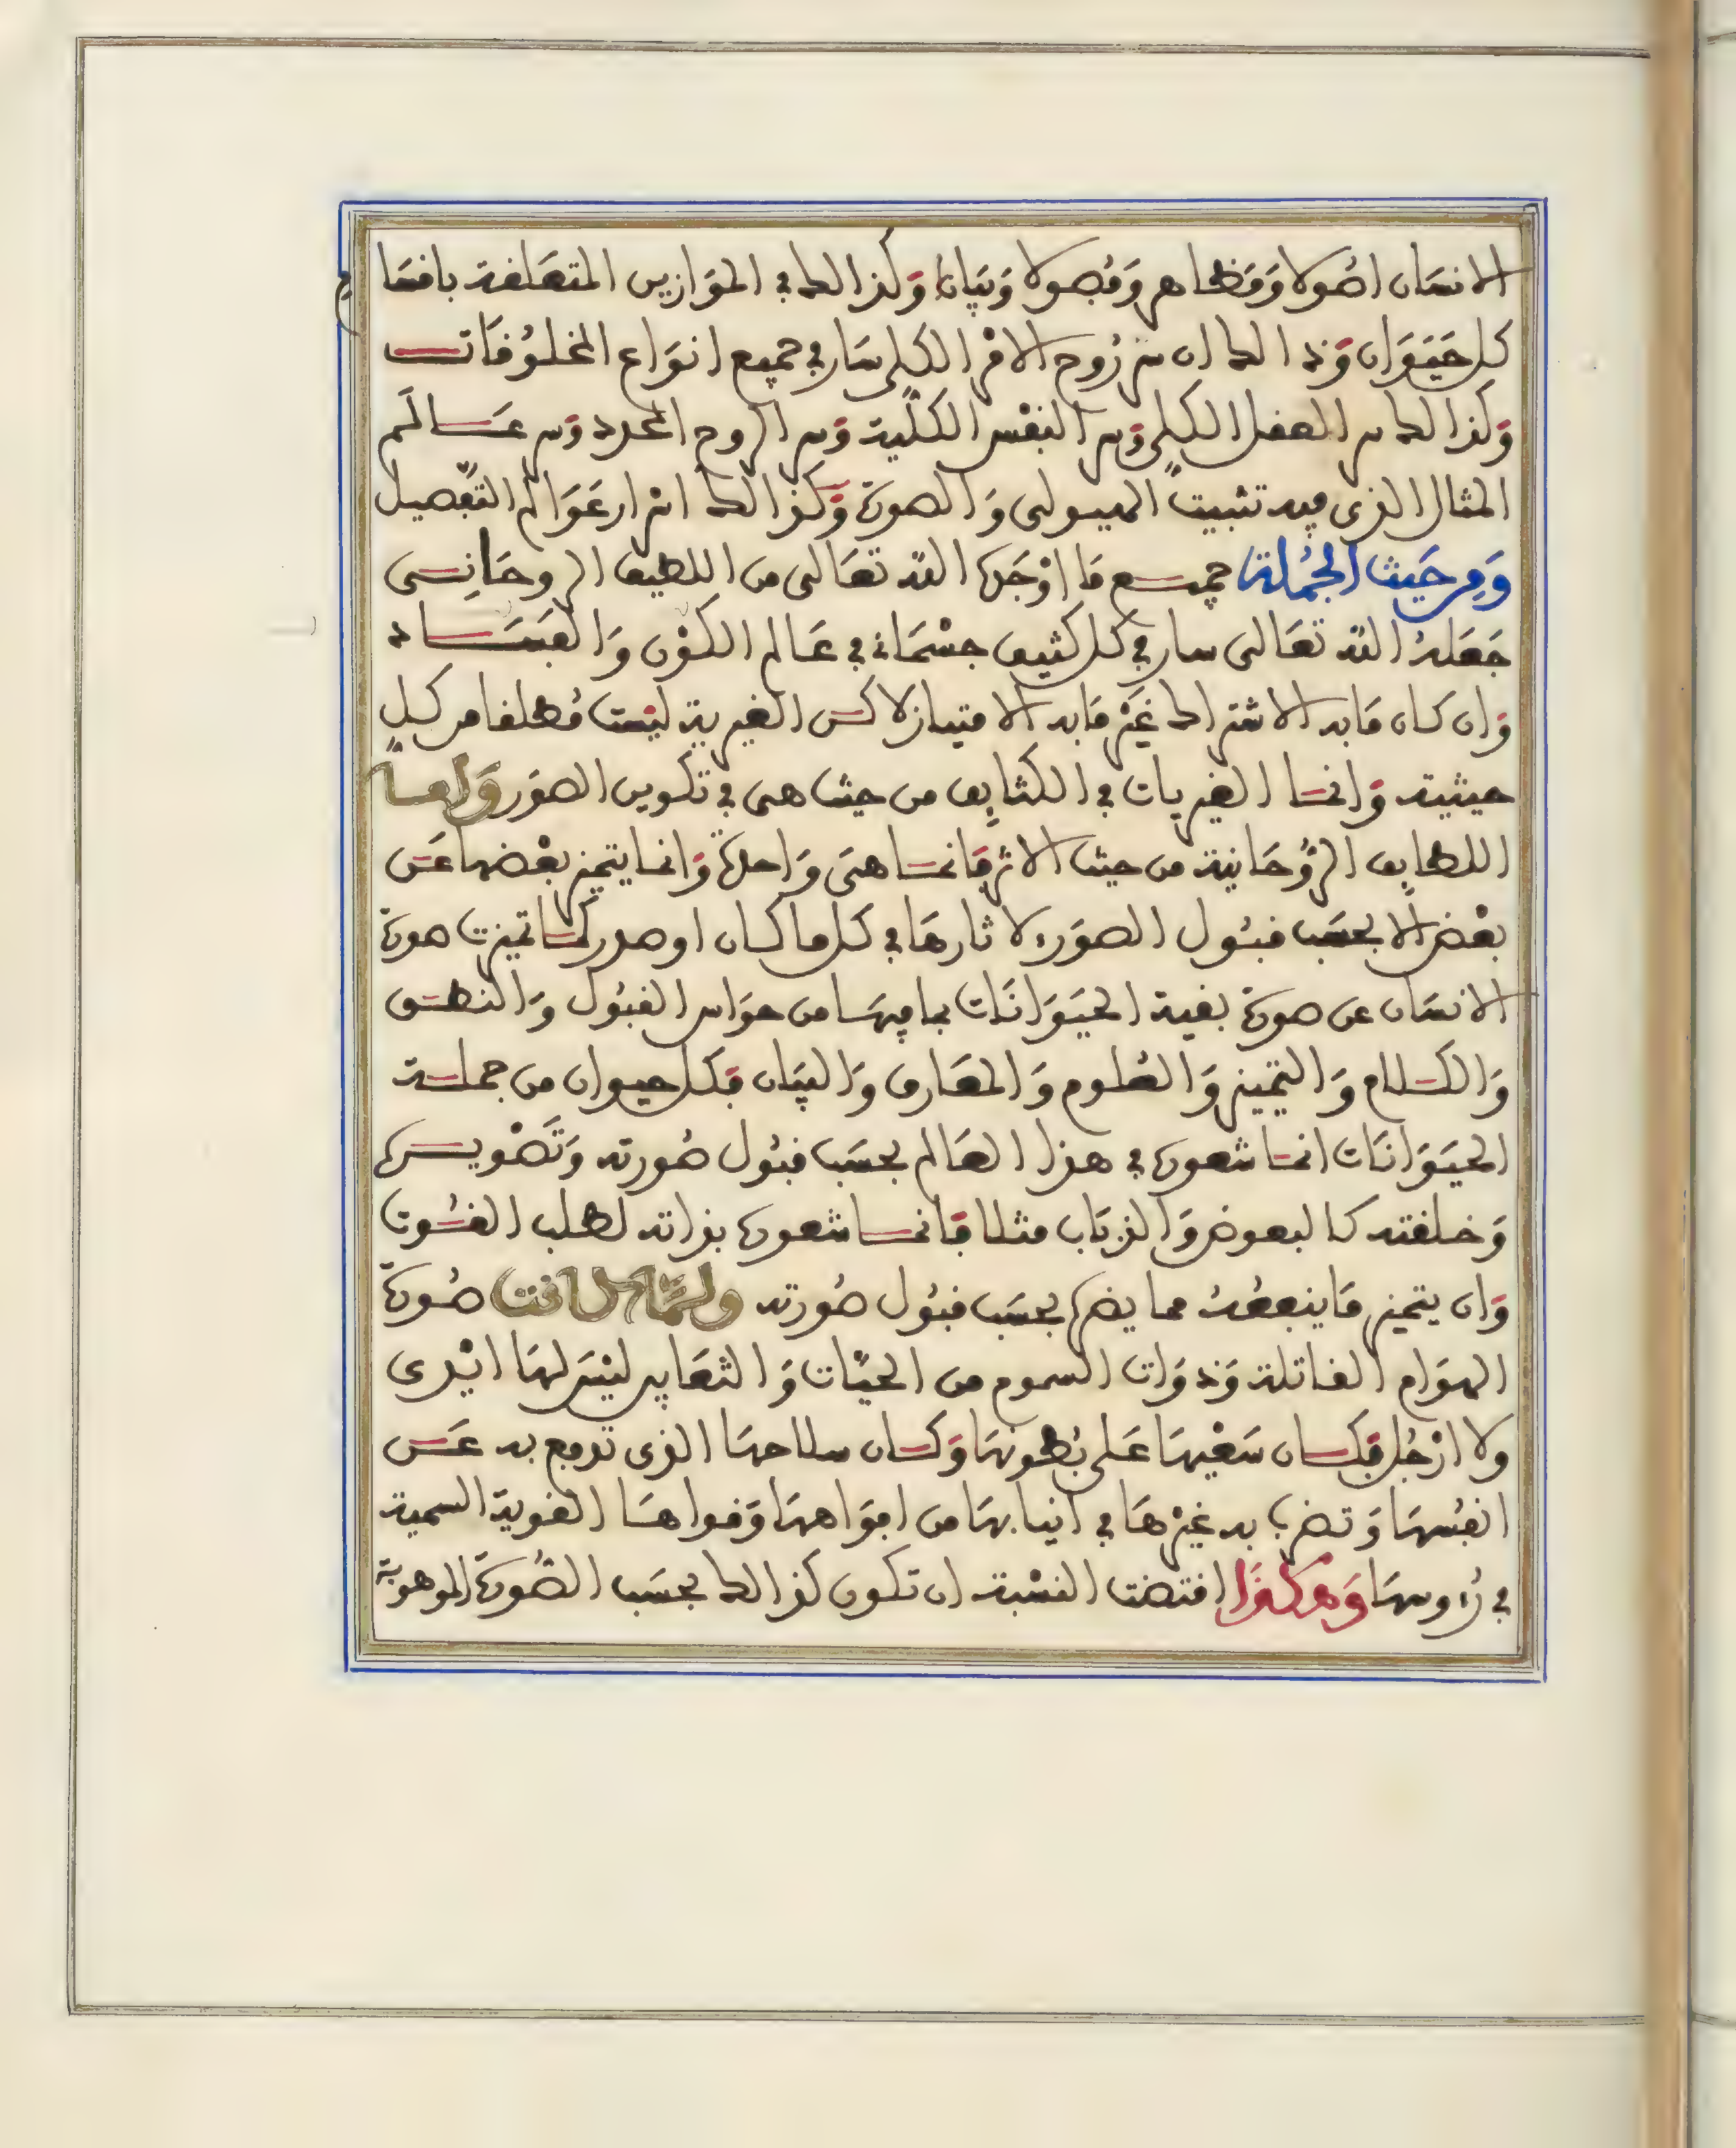 الانسان اصولا ومظاهر وفصولا وبيانا وكذالك في الموازين المتعلقة باقسام
كل حيوان وذالك ان سر روح الامر الكلي سار في جميع انواع المخلوقات
وكذالك سر العقل الكلي وسر النفس الكلية وسر الروح المجرد وسر عالم
المثال الذي فيه تثبيت الهيولى والصورة وكذالك اسرار عوالم التفصيل
ومن حيث الجملة جميع ما اوجده الله تعالى من اللطيف الروحاني
جعله الله تعالى سار في كل كثيف جسماني في عالم الكون والفساد
وان كان ما به الاشتراك غير ما به الامتياز لاكن الغيرية ليست مطلقا من كل
حيثية وانما الغيريات في الكثايف من حيث هي في تكوين الصور واما
اللطايف الروحانية من حيث الاثر فانما هي واحدة وانما يتميز بعضها عن
بعض الا بحسب قبول الصور لاثارها في كل ما كان اوصدر كما تميزت صورة
الانسان عن صورة بقية الحيوانات بما فيها من حواس القبول والنطق
والكلام والتمييز والعلوم والمعارف والبيان فكل حيوان من جملة
الحيوانات انما شعوره في هذا العالم بحسب قبول صورته وتصويره
وخلقته كالبعوض والذباب مثلا فانما شعوره بذاته لطلب القوت
وان يتميز ما ينفعه مما يضره بحسب قبول صورته ولما كانت صورة
الهوام القاتلة وذوات السموم من الحيات والثعابين ليس لها ايدي
ولا ارجل فكان سعيها على بطونها وكان سلاحها الذي تدفع به عن
انفسها وتضر به غيرها في انيابها من افواهها وقواها القوية السمية
في رءوسها وهكذا اقتضت النسبة ان تكون كذالك بحسب الصورة الموهوبة